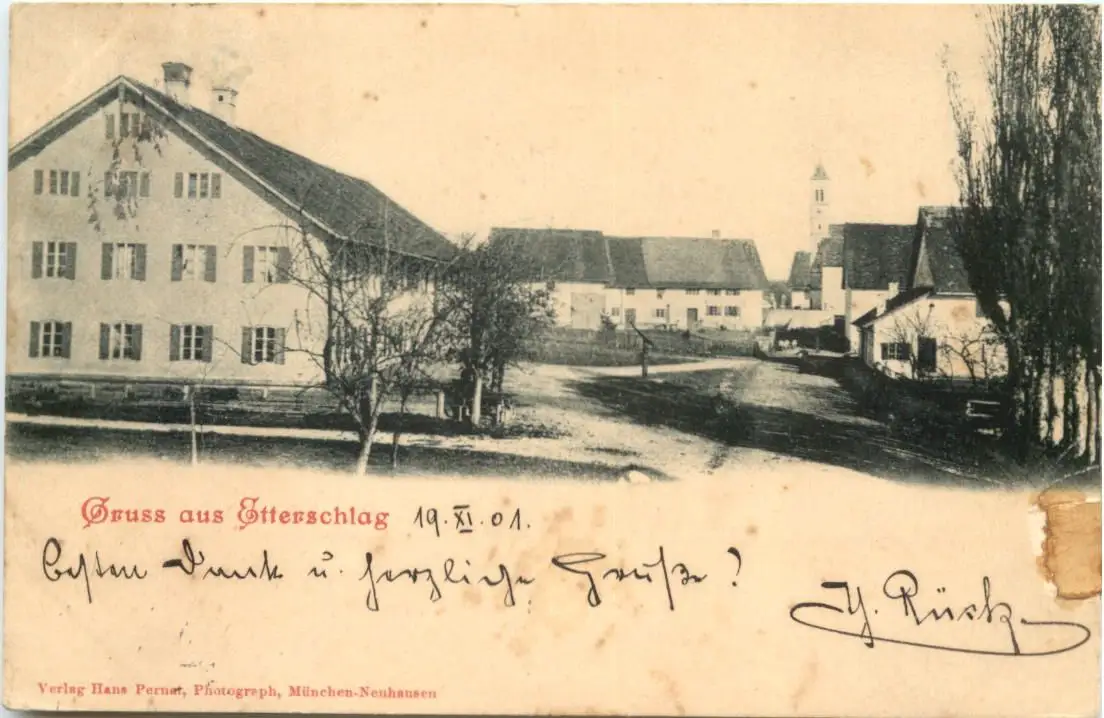 Gruss aus Etterschlag 19.XI.01.
besten Dank u. herzliche Grüße!
Rück
Verlag Hans Pernat, Photograph, München-Neuhausen